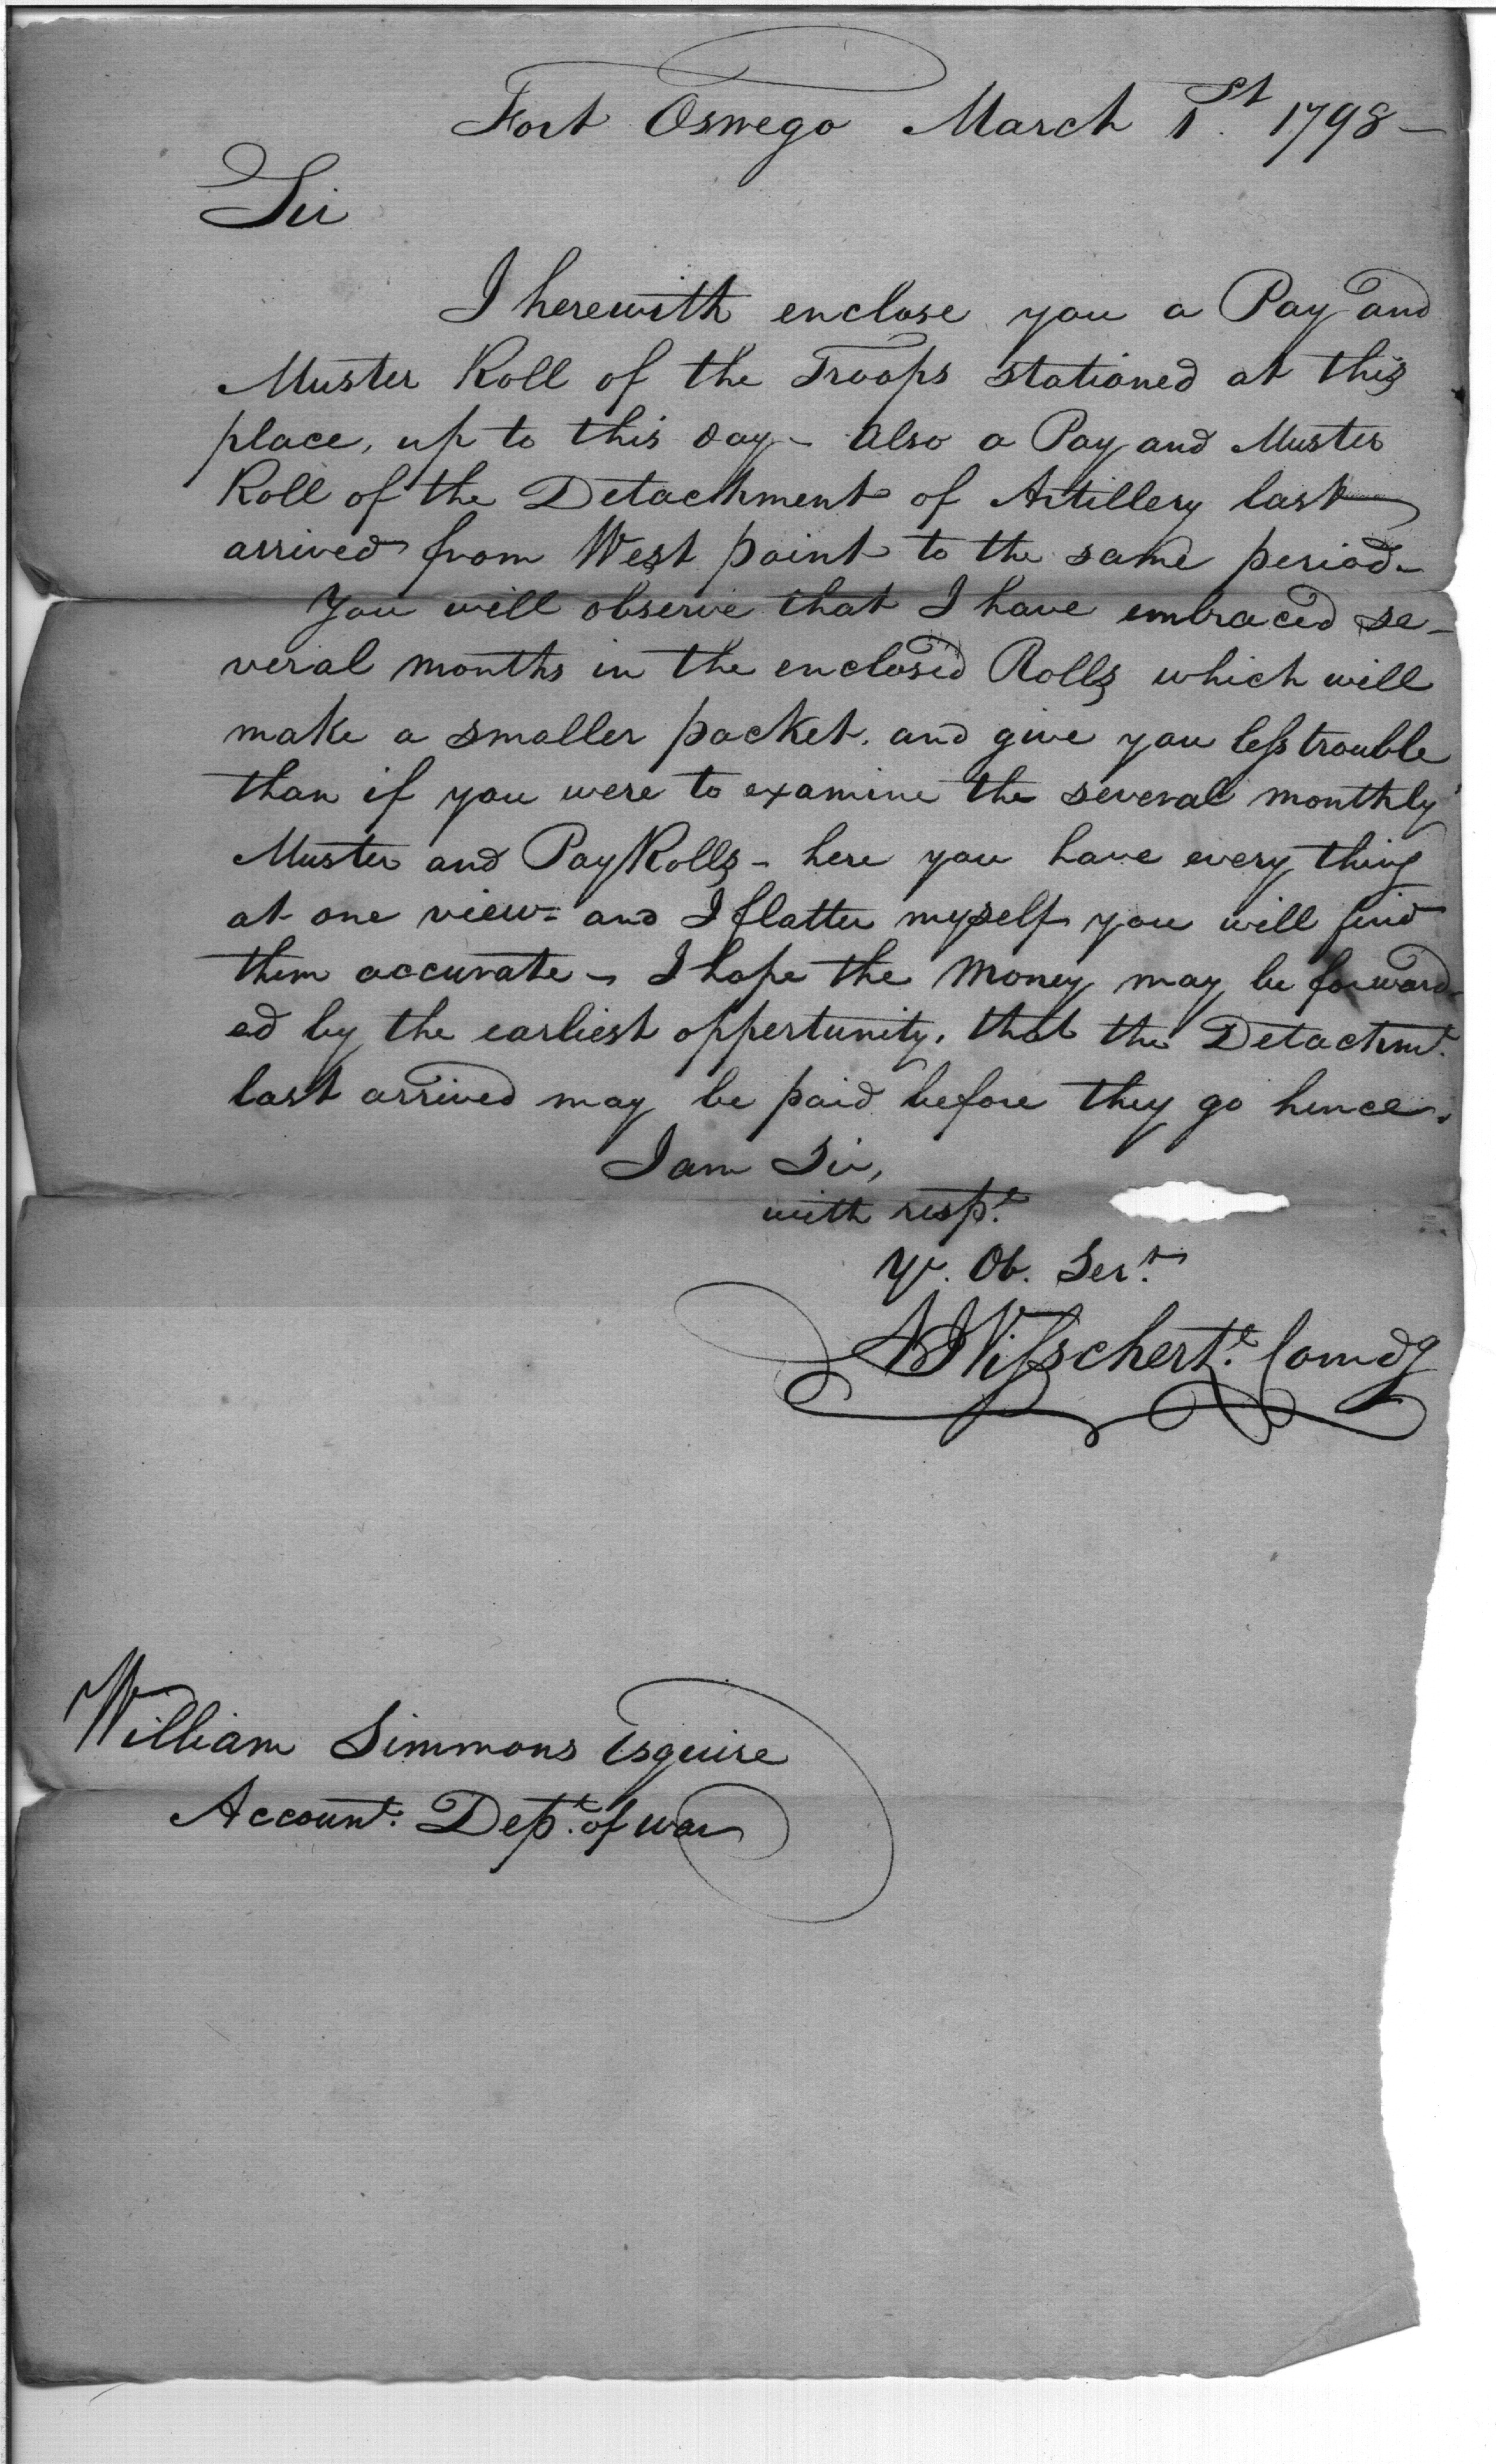 Fort Oswego March 1st. 1798 –
Sir
I herewith enclose you a Pay and
Muster Roll of the Troops stationed at this
place, up to this day – also a Pay and Muster
Roll of the Detachment of Artillery last
arrived from West point to the same period –
You will observe that I have embraced se–
veral months in the enclosed Rolls which will
make a smaller packet, and give you less trouble
than if you were to examine the several monthly
Muster and Pay Rolls – here you have every thing
at one view = and I flatter myself you will find
them accurate – I hope the Money may be forward–
ed by the earliest oppertunity, that the Detachmt.
last arrived may be paid before they go hence.
I am Sir,
with respt.
Yr. Ob. Sert.
Visscher Comdg
William Simmons Esquire
Account. Dept. of war